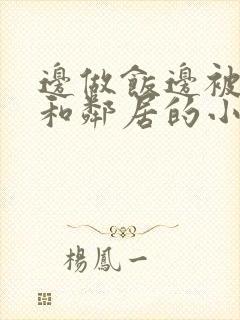 邊做飯邊被
和鄰居的小
楊鳳一